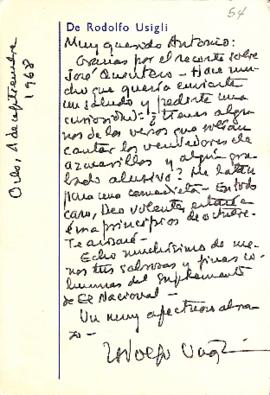 54
De Rodolfo Usigli
Oslo, 1 de septiembre
1968
Muy querido Antonio:
Gracias por el recorte sobre
José Quintero - Hace mu-
cho que quería enviarte
un saludo y pedirte una
curiosidad: ¿tienes algu-
nos de los versos que solían
cantar los vendedores de
azucarillos y algún gra-
bado alusivo? Me
para una comedieta - En todo
caso, Deo volente,
ré a principios de octubre.
Te avisaré -
Echo muchísimo de me-
nos tus sabrosas y finas co-
lumnas del Suplemento
de El Nacional -
Un muy afectuoso abra-
zo -
Rodolfo Usigli